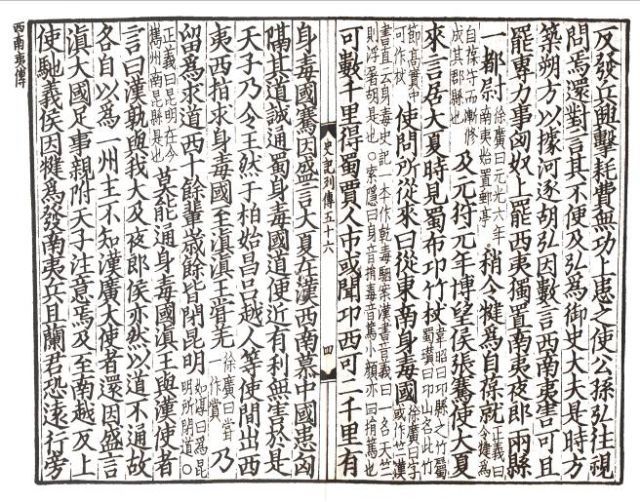 反發兵興擊耗費無功上患之使公孫弘往視
問焉還對言其不便及弘為御史大夫是時方
築朔方以據河逐胡弘因數言西南夷害可且
罷專力事匈奴上罷西夷獨置南夷夜郎兩縣
一都尉徐廣曰元光六年南夷始置郵亭稍令犍為自葆就正義曰令犍為
自葆守而漸修成其郡縣也及元狩元年博望侯張騫使大夏
來言居大夏時見蜀布卭竹杖韋昭曰卭縣之竹屬蜀瓚曰卭山名此竹
節高實中可作杖使問所從來曰從東南身毒國徐廣曰字或作竺漢
書直云身毒史記一本作乾毒駰案漢書音義曰一名天竺
則浮屠胡是也○索隱曰身音捐毒音篤小顏亦曰捐篤也
可數千里得蜀賈人市或聞卭西可二千里有
史記列傳五十六
四
身毒國騫因盛言大夏在漢西南慕中國患匈
隔其道誠通蜀身毒國道便近有利無害於是
天子乃令王然于柏始昌呂越人等使間出西
夷西指求身毒國至滇滇王嘗羌徐廣曰嘗一作賞乃
留為求道西十餘輩歲餘皆閉昆明如淳曰為昆明所閉道○
正義曰昆明在今嶲州南昆縣是也莫能通身毒國滇王與漢使者
言曰漢孰與我大及夜郎侯亦然以道不通故
各自以為一州主不知漢廣大使者還因盛言
滇大國足事親附天子注意焉及至南越反上
使馳義侯因犍為發南夷兵且蘭君恐遠行旁
西南夷傳